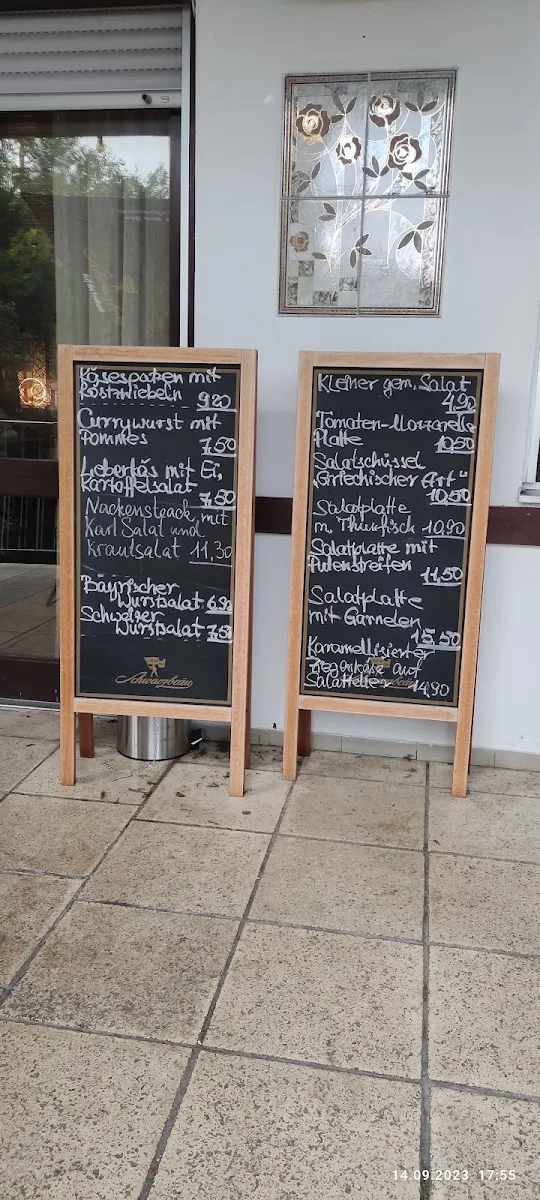 Käsespatzen mit
Röstzwiebeln 9,20
Currywurst mit
Pommes 7,50
Leberkäs mit Ei,
Kartoffelsalat 7,50
Nackensteak mit
Kart Salat und
Krautsalat 11,30
Bayrischer
Wurstsalat 6,90
Schweizer
Wurstsalat 7,50
Schwarzbräu
Kleiner gem. Salat
4,90
Tomaten-Mozzarella
Platte 10,50
Salatschüssel
"Griechischer Art"
10,50
Salatplatte
m. Thunfisch 10,90
Salatplatte mit
Putenstreifen
11,50
Salatplatte
mit Garnelen
15,50
Karamellisierter
Ziegenkäse auf
Salatteller 14,90
14.09.2023 17:55